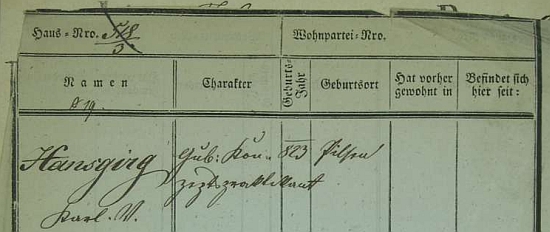 Haus-Nro. 578
Wohnpartei-Nro.
Namen
Charakter
Geburts-Jahr
Geburtsort
Hat vorher gewohnt in
Befindet sich hier seit:
Hansgirg
Gub: Kon-
823
Pilsen
zeptspraktikant
Karl. V.